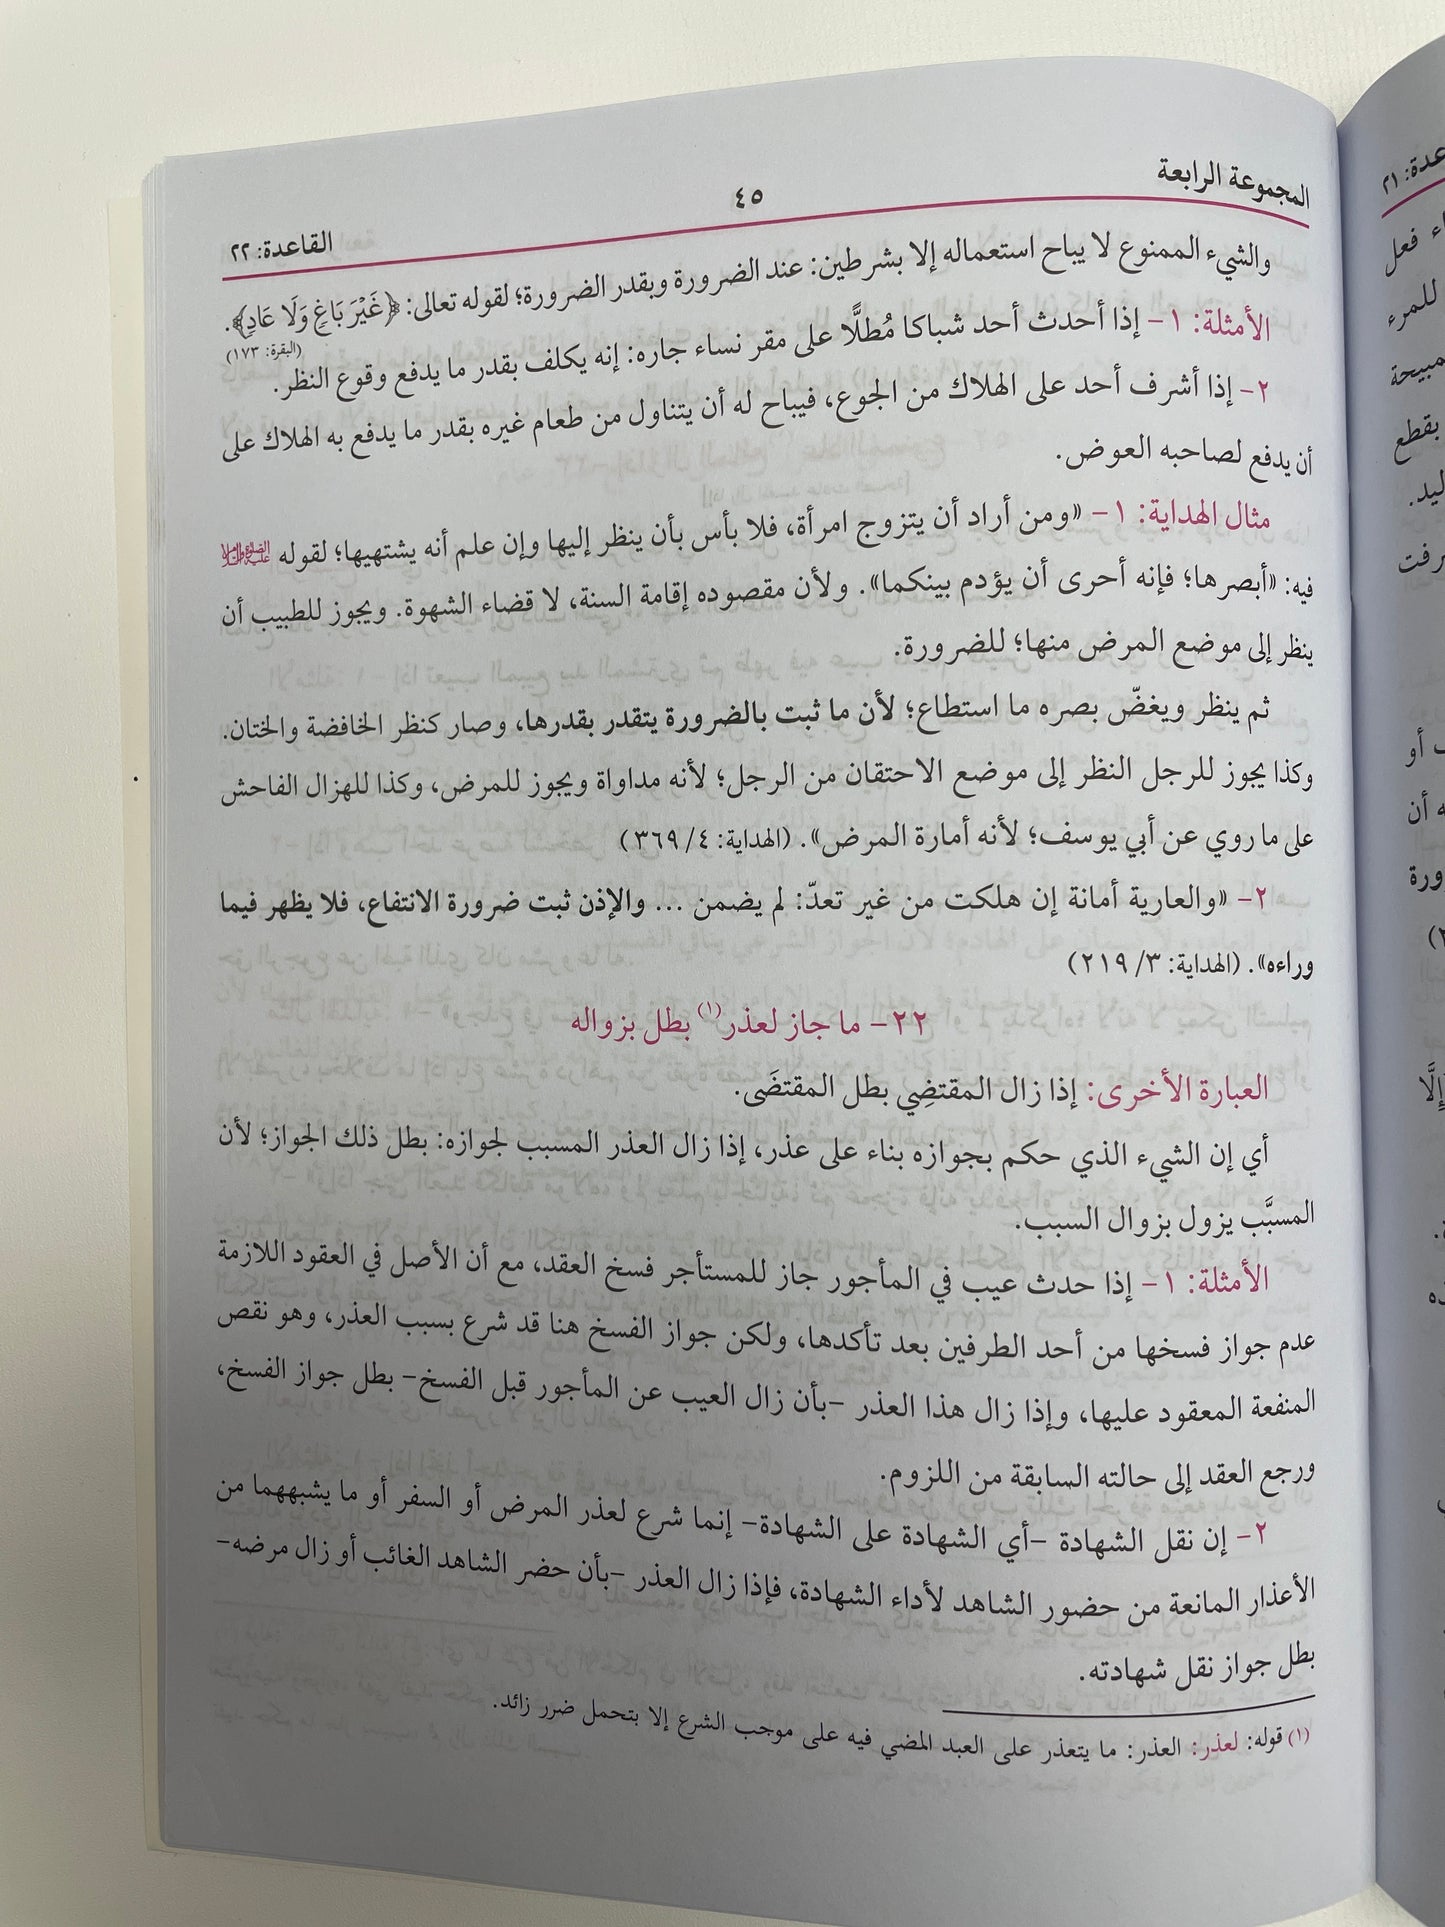 المجموعة الرابعة
٤٥
القاعدة: ٢٢
والشيء الممنوع لا يباح استعماله إلا بشرطين: عند الضرورة وبقدر الضرورة؛ لقوله تعالى: ﴿غَيْرَ بَاغٍ وَلَا عَادٍ﴾.
(البقرة: ١٧٣)
الأمثلة: ١- إذا أحدث أحد شباكا مُطلًّا على مقر نساء جاره: إنه يكلف بقدر ما يدفع وقوع النظر.
٢- إذا أشرف أحد على الهلاك من الجوع، فيباح له أن يتناول من طعام غيره بقدر ما يدفع به الهلاك على
أن يدفع لصاحبه العوض.
مثال الهداية: ١- «ومن أراد أن يتزوج امرأة، فلا بأس بأن ينظر إليها وإن علم أنه يشتهيها؛ لقوله
فيه: «أبصرها؛ فإنه أحرى أن يؤدم بينكما». ولأن مقصوده إقامة السنة، لا قضاء الشهوة. ويجوز للطبيب أن
ينظر إلى موضع المرض منها؛ للضرورة.
ثم ينظر ويغضّ بصره ما استطاع؛ لأن ما ثبت بالضرورة يتقدر بقدرها، وصار كنظر الخافضة والختان.
وكذا يجوز للرجل النظر إلى موضع الاحتقان من الرجل؛ لأنه مداواة ويجوز للمرض، وكذا للهزال الفاحش
على ما روي عن أبي يوسف؛ لأنه أمارة المرض». (الهداية: ٤/ ٣٦٩)
٢- «والعارية أمانة إن هلكت من غير تعدّ: لم يضمن ... والإذن ثبت ضرورة الانتفاع، فلا يظهر فيما
وراءه». (الهداية: ٣/ ٢١٩)
٢٢- ما جاز لعذر(١) بطل بزواله
العبارة الأخرى: إذا زال المقتضِي بطل المقتضَى.
أي إن الشيء الذي حكم بجوازه بناء على عذر، إذا زال العذر المسبب لجوازه: بطل ذلك الجواز؛ لأن
المسبَّب يزول بزوال السبب.
الأمثلة: ١- إذا حدث عيب في المأجور جاز للمستأجر فسخ العقد، مع أن الأصل في العقود اللازمة
عدم جواز فسخها من أحد الطرفين بعد تأكدها، ولكن جواز الفسخ هنا قد شرع بسبب العذر، وهو نقص
المنفعة المعقود عليها، وإذا زال هذا العذر -بأن زال العيب عن المأجور قبل الفسخ- بطل جواز الفسخ،
ورجع العقد إلى حالته السابقة من اللزوم.
٢- إن نقل الشهادة -أي الشهادة على الشهادة- إنما شرع لعذر المرض أو السفر أو ما يشبههما من
الأعذار المانعة من حضور الشاهد لأداء الشهادة، فإذا زال العذر -بأن حضر الشاهد الغائب أو زال مرضه-
بطل جواز نقل شهادته.
(١) قوله: لعذر: العذر: ما يتعذر على العبد المضي فيه على موجب الشرع إلا بتحمل ضرر زائد.